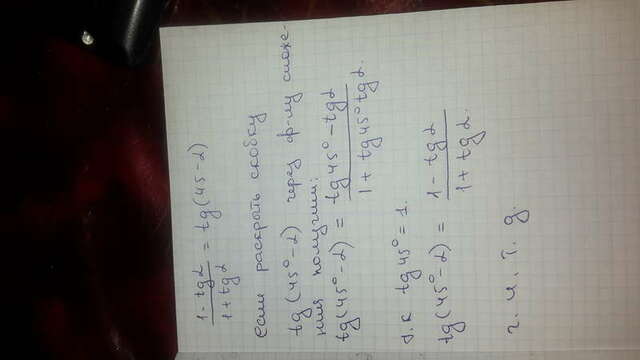 1 - tgα / 1 + tgα = tg(45-α)
если раскрыть скобку
tg(45°-α) через ф-лу сложе-
ния получим:
tg(45°-α) = tg45° - tgα / 1 + tg45° tgα.
т.к tg45° = 1.
tg(45°-α) = 1 - tgα / 1 + tgα.
ч. и. т. д.